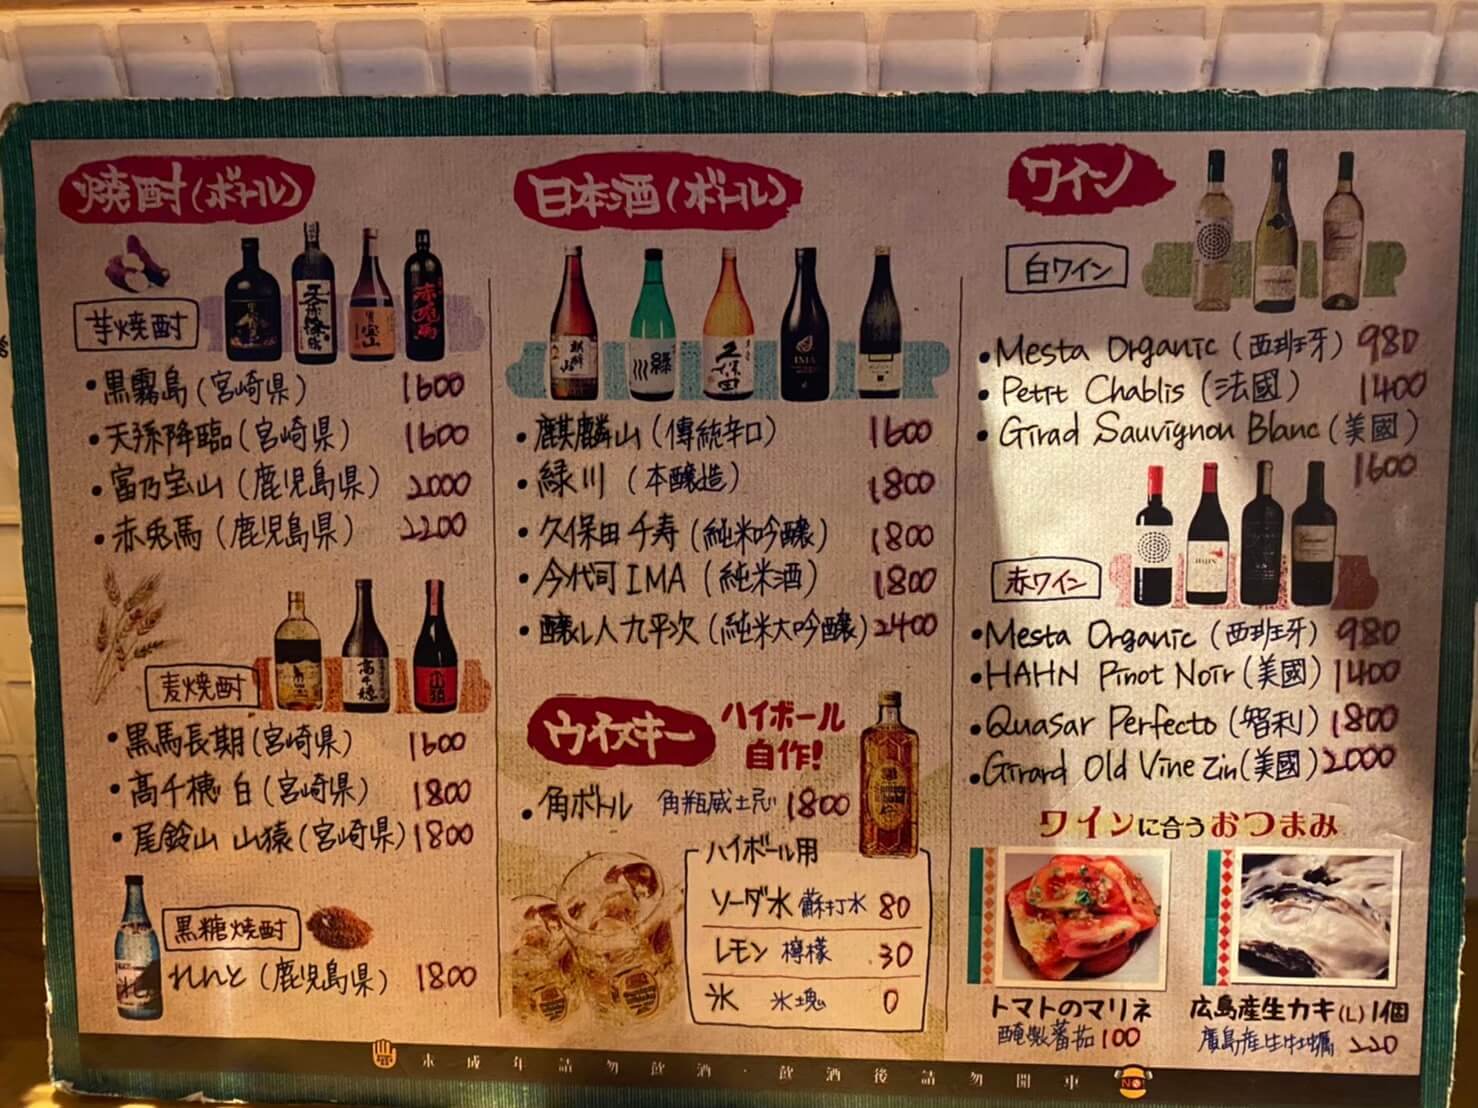 焼酎(ボトル)
芋焼酎
・黒霧島(宮崎県) 1600
・天孫降臨(宮崎県) 1600
・富乃宝山(鹿児島県) 2000
・赤兎馬(鹿児島県) 2200
麦焼酎
・黒馬長期(宮崎県) 1600
・高千穂 白(宮崎県) 1800
・尾鈴山 山猿(宮崎県) 1800
黒糖焼酎
れんと(鹿児島県) 1800
日本酒(ボトル)
・麒麟山(傳統辛口) 1600
・緑川(本醸造) 1800
・久保田 千寿(純米吟醸) 1800
・今代司 IMA(純米酒) 1800
・醸し人九平次(純米大吟醸) 2400
ウイスキー
ハイボール
自作!
・角ボトル 角瓶威士忌 1800
ハイボール用
ソーダ水 蘇打水 80
レモン 檸檬 30
氷 氷塊 0
ワイン
白ワイン
・Mesta Organic(西班牙) 980
・Petit Chablis(法國) 1400
・Girad Sauvignon Blanc(美國)
1600
赤ワイン
・Mesta Organic(西班牙) 980
・HAHN Pinot Noir(美國) 1400
・Quasar Perfecto(智利) 1800
・Girard Old Vine Zin(美國) 2000
ワインに合うおつまみ
トマトのマリネ
醃製蕃茄 100
広島産生カキ(L)1個
廣島産生牡蠣 220
未成年請勿飲酒·飲酒後請勿開車